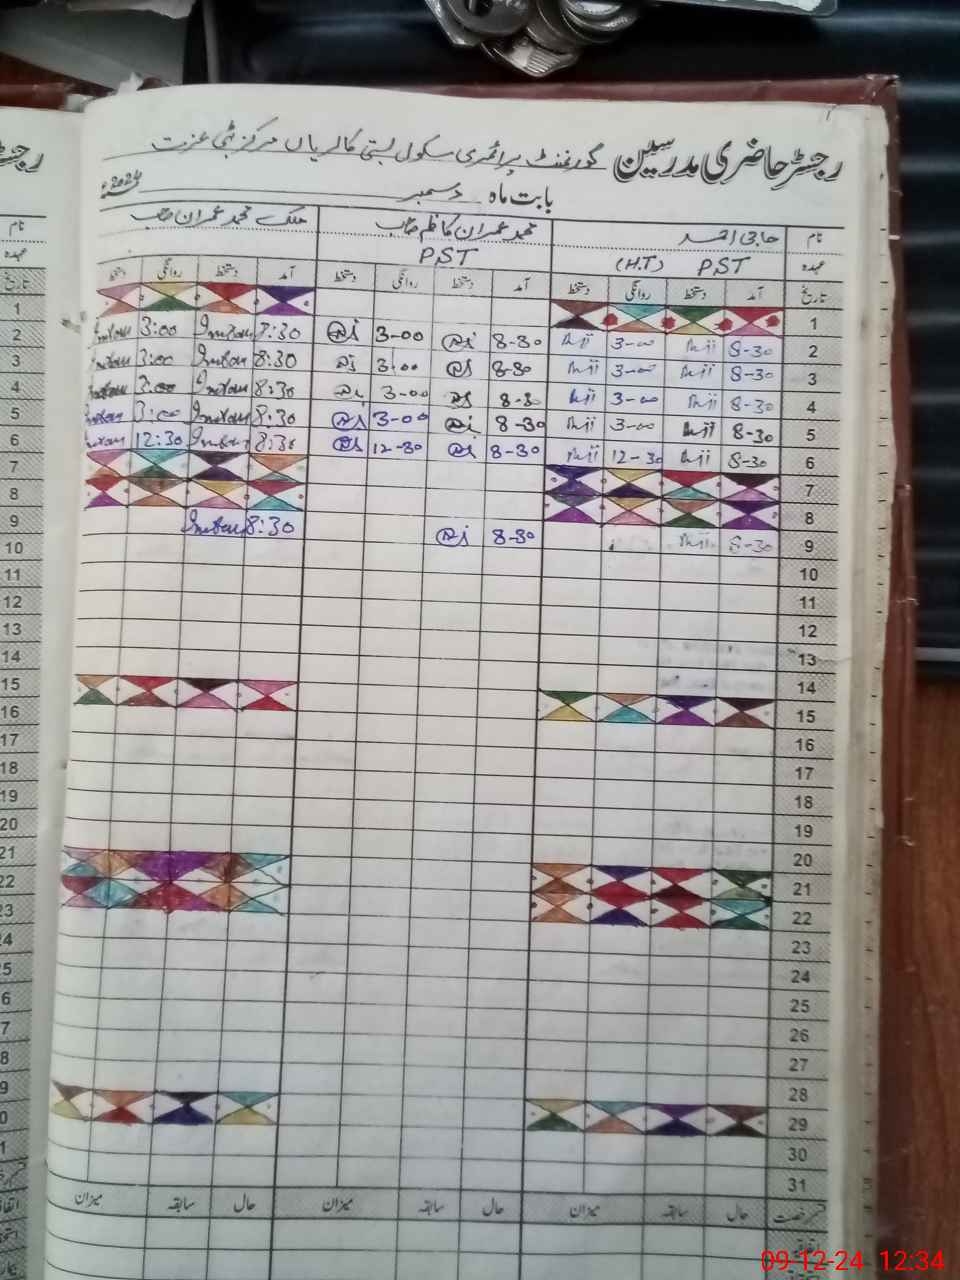 رجسٹر حاضری مدرسین گورنمنٹ پرائمری سکول بستی کالریاں مرکز ٹبی عزت
بابت ماہ دسمبر 2024ء
نام حاجی احمد محمد عمران کاظم صاحب ملک محمد عمران صاحب
عہدہ PST (H.T) PST
تاریخ آمد دستخط روانگی دستخط آمد دستخط روانگی دستخط آمد دستخط روانگی دستخط
1
2 8-30 3-00 8-30 3-00 8:30 Imran 3:00 Imran
3 8-30 3-00 8-30 3:00 8:30 Imran 3:00 Imran
4 8-30 3-00 8-30 3-00 8:30 Imran 3:00 Imran
5 8-30 3-00 8-30 3-00 8:30 Imran 3:00 Imran
6 8-30 12-30 8-30 12-30 8:30 Imran 12:30 Imran
7
8
9 8-30 8-30 8:30 Imran
10
11
12
13
14
15
16
17
18
19
20
21
22
23
24
25
26
27
28
29
30
31
حال سابقہ میزان حال سابقہ میزان حال سابقہ میزان
09-12-24 12:34